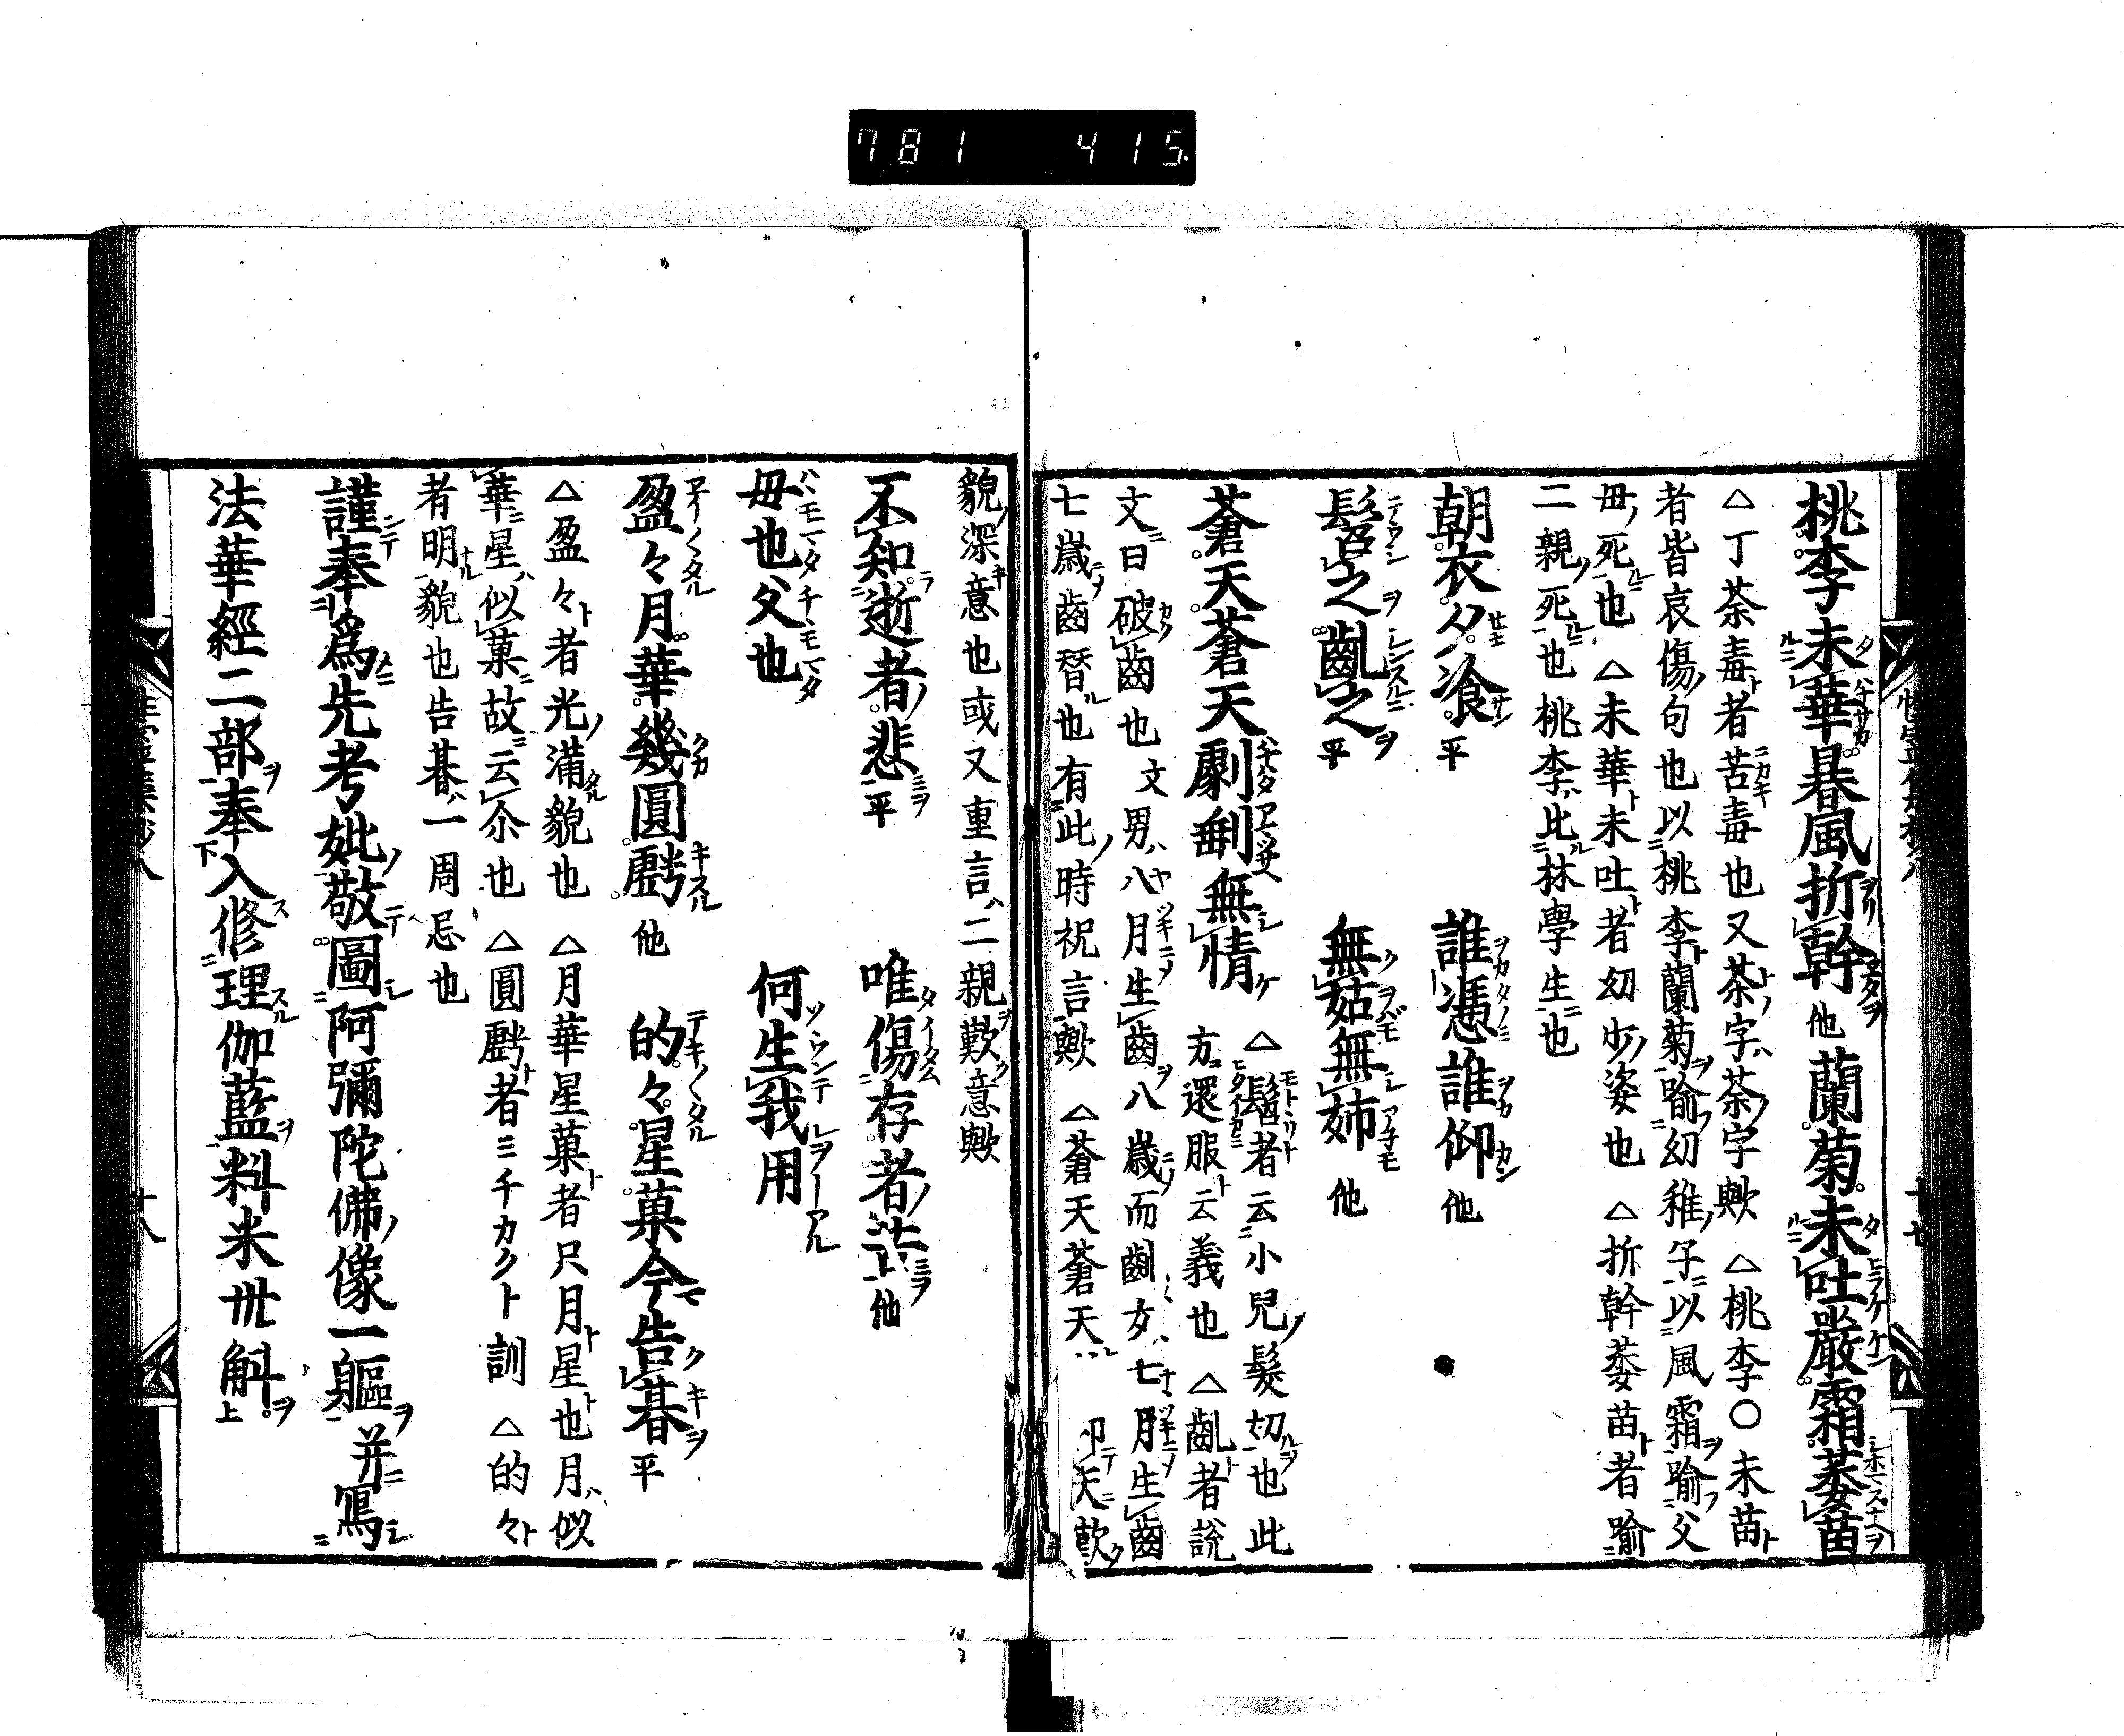 781 415
桃李未華暴風折幹他蘭菊未吐嚴霜萎苗
△丁荼毒者苦毒也又茶字荼字歟 △桃李〇未苗
者皆哀傷句也以桃李蘭菊喻幼稚子以風霜喻父
毋死也 △未華未吐者幼少姿也 △折幹萎苗者喻
二親死也桃李比林學生也
朝衣夕飡平 誰憑誰仰他
髫之齓之平 無姑無姉他
蒼天蒼天劇剬無情 △髫者云小兒髮切也此
方還服云義也 △齓者說
文曰破齒也文男八月生齒八歲而齓女七月生齒
七歲齒替也有此時祝言歟 △蒼天蒼天 仰天歎
貌深意也或又重言二親歎意歟
不知逝者悲平 唯傷存者 他
毋也父也 何生我用
盈々月華幾圓虧他 的々星菓今告朞平
△盈々者光滿貌也 △月華星菓者尺月星也月似
華星似菓故云尒也 △圓虧者ミチカクト訓 △的々
者明貌也告朞一周忌也
謹奉爲先考妣敬圖阿彌陀佛像一軀并寫
法華經二部奉入修理伽藍料米卅斛